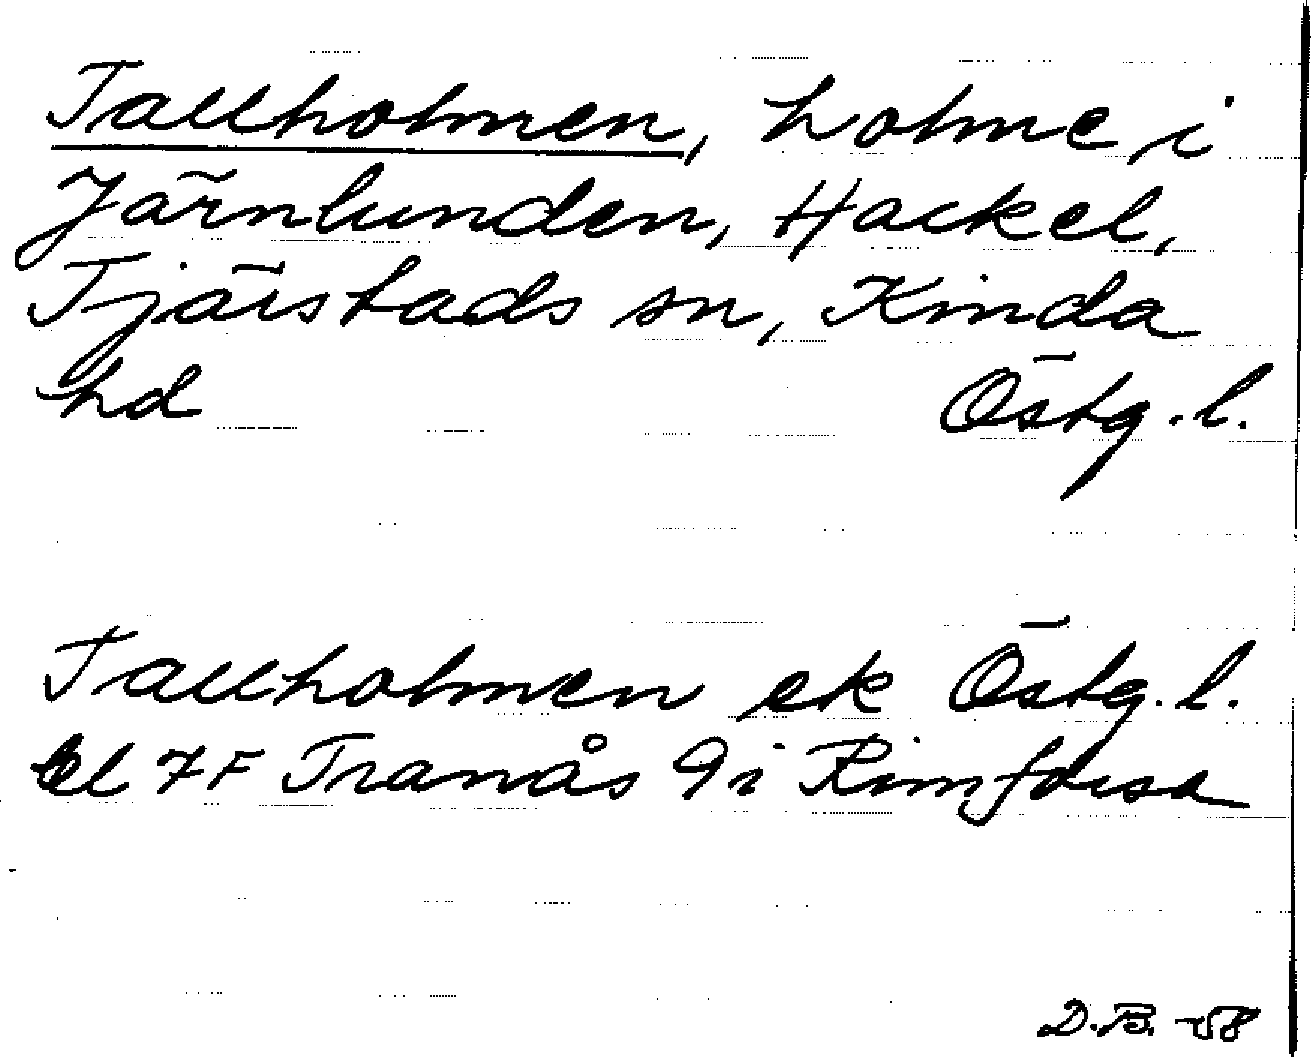 Tallholmen, holme i
Järnlunden, Hackel,
Tjärstads sn, Kinda
hd Östg. l.
Tallholmen ek Östg. l.
bl 7F Tranås 9i Rimforsa
D.B. -58